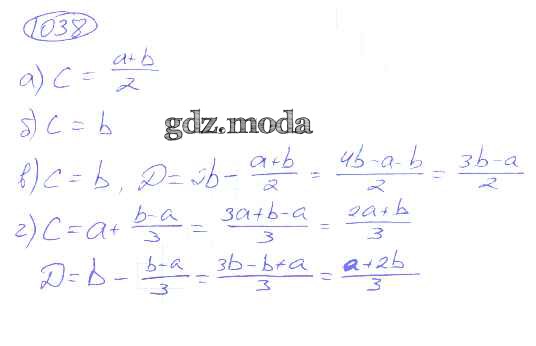 1038
а) C = (a+b)/2
б) C = b
gdz.moda
в) C = b, D = 2b - (a+b)/2 = (4b-a-b)/2 = (3b-a)/2
г) C = a + (b-a)/3 = (3a+b-a)/3 = (2a+b)/3
D = b - (b-a)/3 = (3b-b+a)/3 = (a+2b)/3